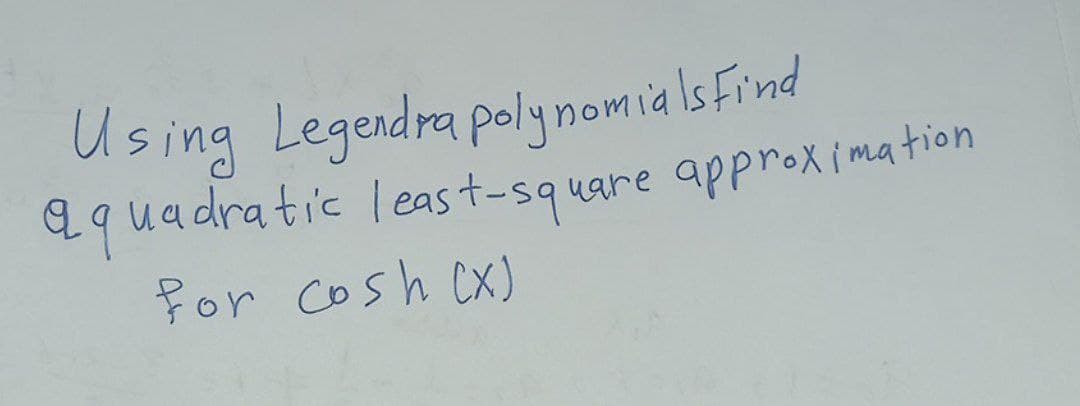 Using Legendra polynomials Find
a quadratic least-square approximation
for cosh (x)